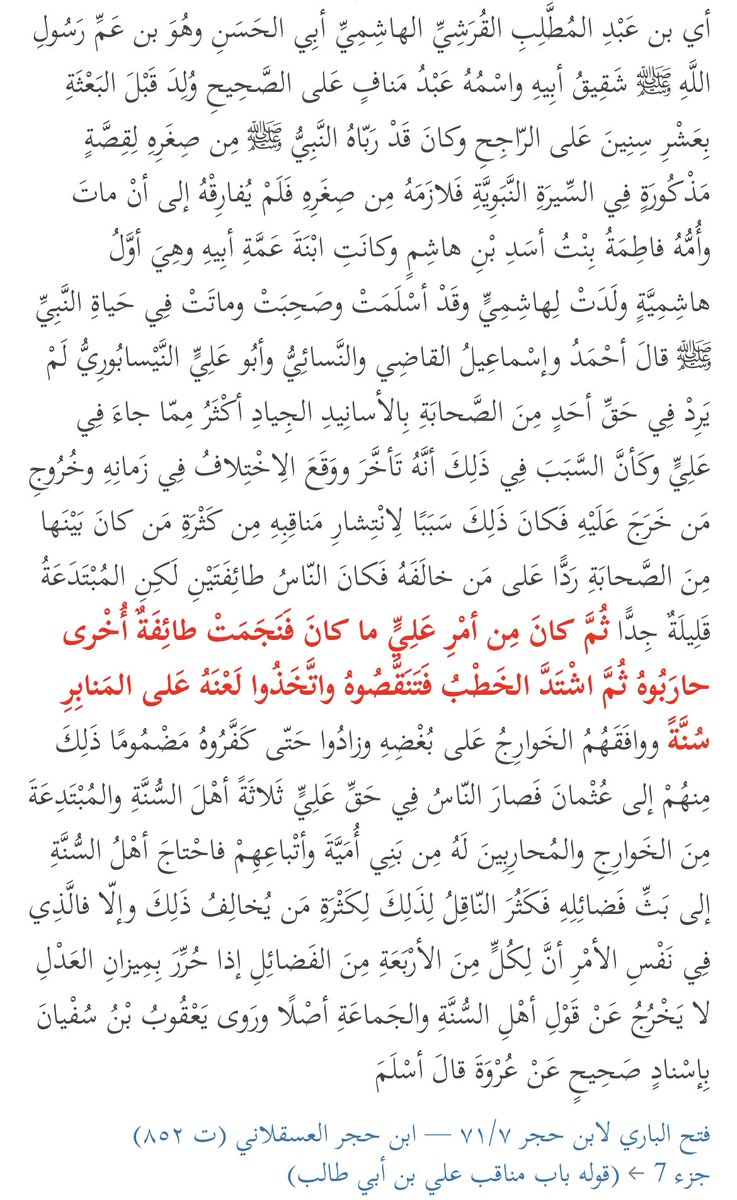 أي بن عَبْدِ المُطَّلِبِ القُرَشِيِّ الهاشِمِيِّ أبِي الحَسَنِ وهُوَ بن عَمِّ رَسُولِ
اللَّهِ ﷺ شَقِيقُ أبِيهِ واسْمُهُ عَبْدُ مَنافٍ عَلى الصَّحِيحِ وُلِدَ قَبْلَ البَعْثَةِ
بِعَشْرِ سِنِينَ عَلى الرّاجِحِ وكانَ قَدْ رَبّاهُ النَّبِيُّ ﷺ مِن صِغَرِهِ لِقِصَّةٍ
مَذْكُورَةٍ فِي السِّيرَةِ النَّبَوِيَّةِ فَلازَمَهُ مِن صِغَرِهِ فَلَمْ يُفارِقْهُ إلى أنْ ماتَ
وأُمُّهُ فاطِمَةُ بِنْتُ أسَدِ بْنِ هاشِمٍ وكانَتِ ابْنَةَ عَمَّةِ أبِيهِ وهِيَ أوَّلُ
هاشِمِيَّةٍ ولَدَتْ لِهاشِمِيٍّ وقَدْ أسْلَمَتْ وصَحِبَتْ وماتَتْ فِي حَياةِ النَّبِيِّ
ﷺ قالَ أحْمَدُ وإسْماعِيلُ القاضِي والنَّسائِيُّ وأبُو عَلِيٍّ النَّيْسابُورِيُّ لَمْ
يَرِدْ فِي حَقِّ أحَدٍ مِنَ الصَّحابَةِ بِالأسانِيدِ الجِيادِ أكْثَرُ مِمّا جاءَ فِي
عَلِيٍّ وكَأنَّ السَّبَبَ فِي ذَلِكَ أنَّهُ تَأخَّرَ ووَقَعَ الِاخْتِلافُ فِي زَمانِهِ وخُرُوجِ
مَن خَرَجَ عَلَيْهِ فَكانَ ذَلِكَ سَبَبًا لِانْتِشارِ مَناقِبِهِ مِن كَثْرَةِ مَن كانَ بَيْنَها
مِنَ الصَّحابَةِ رَدًّا عَلى مَن خالَفَهُ فَكانَ النّاسُ طائِفَتَيْنِ لَكِنِ المُبْتَدَعَةُ
قَلِيلَةٌ جِدًّا ثُمَّ كانَ مِن أمْرِ عَلِيٍّ ما كانَ فَنَجَمَتْ طائِفَةٌ أُخْرى
حارَبُوهُ ثُمَّ اشْتَدَّ الخَطْبُ فَتَنَقَّصُوهُ واتَّخَذُوا لَعْنَهُ عَلى المَنابِرِ
سُنَّةً ووافَقَهُمُ الخَوارِجُ عَلى بُغْضِهِ وزادُوا حَتّى كَفَّرُوهُ مَضْمُومًا ذَلِكَ
مِنهُمْ إلى عُثْمانَ فَصارَ النّاسُ فِي حَقِّ عَلِيٍّ ثَلاثَةً أهْلَ السُّنَّةِ والمُبْتَدِعَةَ
مِنَ الخَوارِجِ والمُحارِبِينَ لَهُ مِن بَنِي أُمَيَّةَ وأتْباعِهِمْ فاحْتاجَ أهْلُ السُّنَّةِ
إلى بَثِّ فَضائِلِهِ فَكَثُرَ النّاقِلُ لِذَلِكَ لِكَثْرَةِ مَن يُخالِفُ ذَلِكَ وإلّا فالَّذِي
فِي نَفْسِ الأمْرِ أنَّ لِكُلٍّ مِنَ الأرْبَعَةِ مِنَ الفَضائِلِ إذا حُرِّرَ بِمِيزانِ العَدْلِ
لا يَخْرُجُ عَنْ قَوْلِ أهْلِ السُّنَّةِ والجَماعَةِ أصْلًا ورَوى يَعْقُوبُ بْنُ سُفْيانَ
بِإسْنادٍ صَحِيحٍ عَنْ عُرْوَةَ قالَ أسْلَمَ
فتح الباري لابن حجر ٧١/٧ — ابن حجر العسقلاني (ت ٨٥٢)
جزء 7 ← (قوله باب مناقب علي بن أبي طالب)